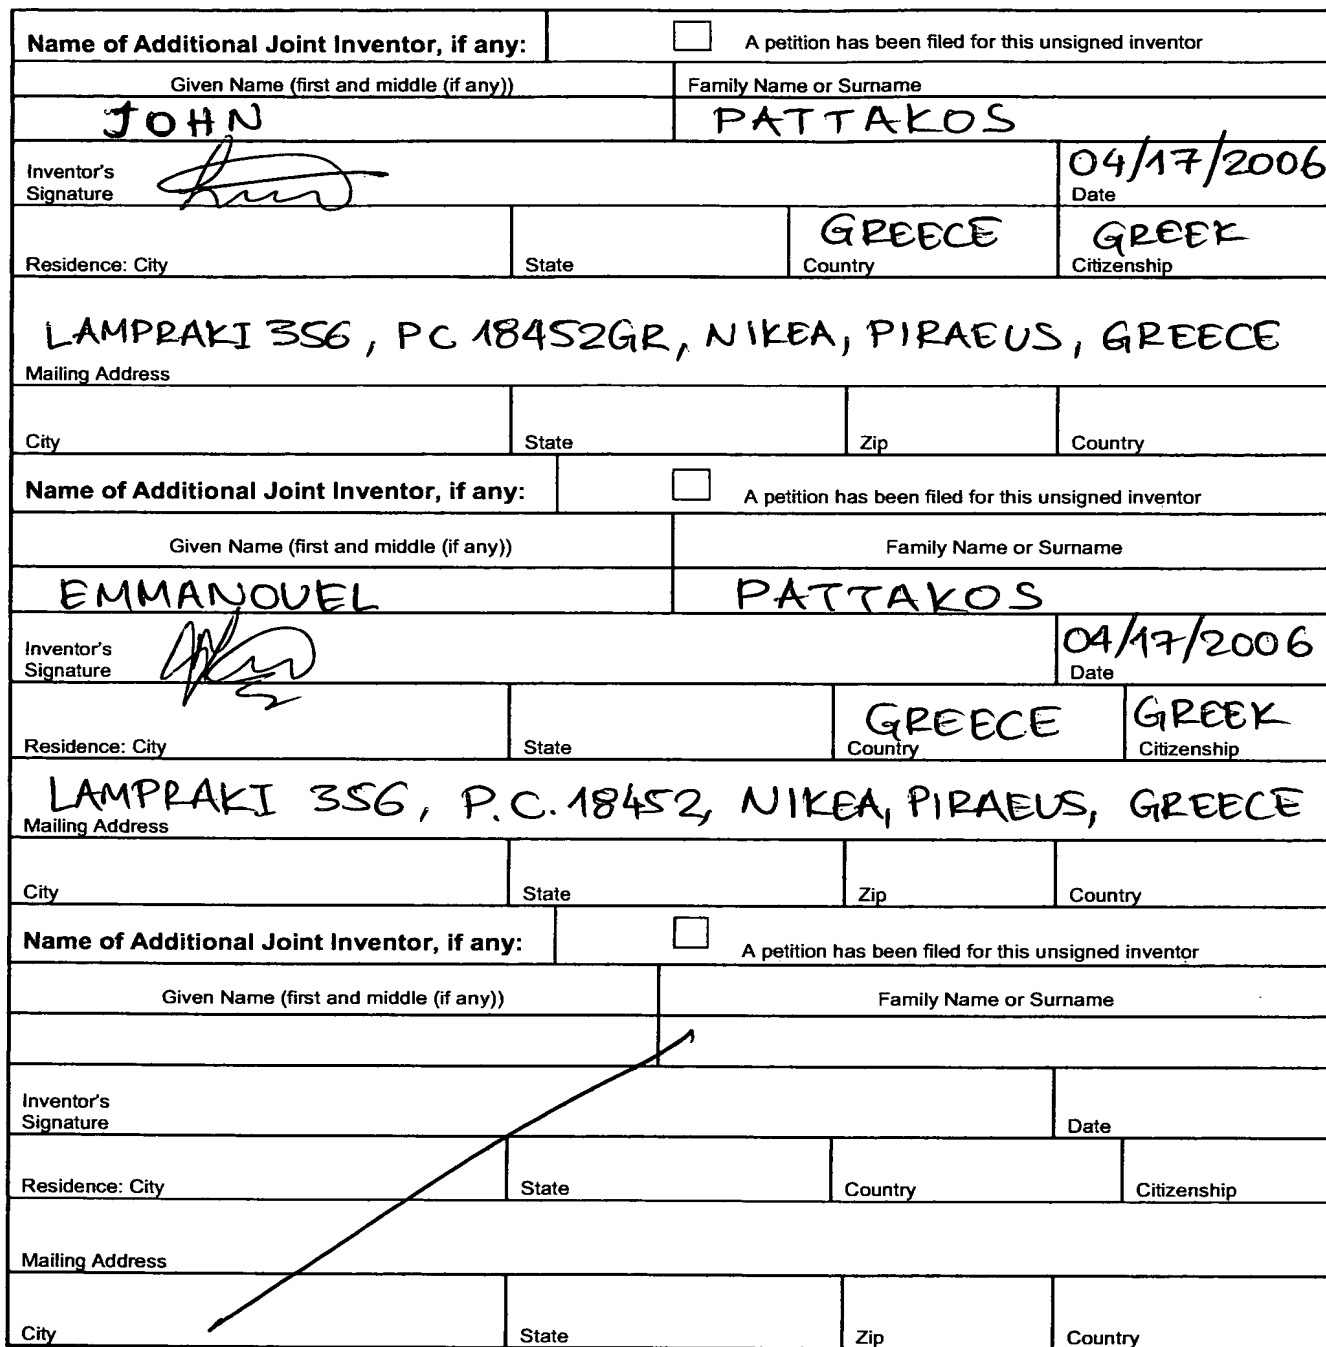 Name of Additional Joint Inventor, if any: A petition has been filed for this unsigned inventor
Given Name (first and middle (if any)) Family Name or Surname
JOHN PATTAKOS
Inventor's
Signature
04/17/2006
Date
GREECE GREEK
Residence: City State Country Citizenship
LAMPRAKI 356, PC 18452GR, NIKEA, PIRAEUS, GREECE
Mailing Address
City State Zip Country
Name of Additional Joint Inventor, if any: A petition has been filed for this unsigned inventor
Given Name (first and middle (if any)) Family Name or Surname
EMMANOUEL PATTAKOS
Inventor's
Signature
04/17/2006
Date
GREECE GREEK
Residence: City State Country Citizenship
LAMPRAKI 356, P.C. 18452, NIKEA, PIRAEUS, GREECE
Mailing Address
City State Zip Country
Name of Additional Joint Inventor, if any: A petition has been filed for this unsigned inventor
Given Name (first and middle (if any)) Family Name or Surname
Inventor's
Signature Date
Residence: City State Country Citizenship
Mailing Address
City State Zip Country